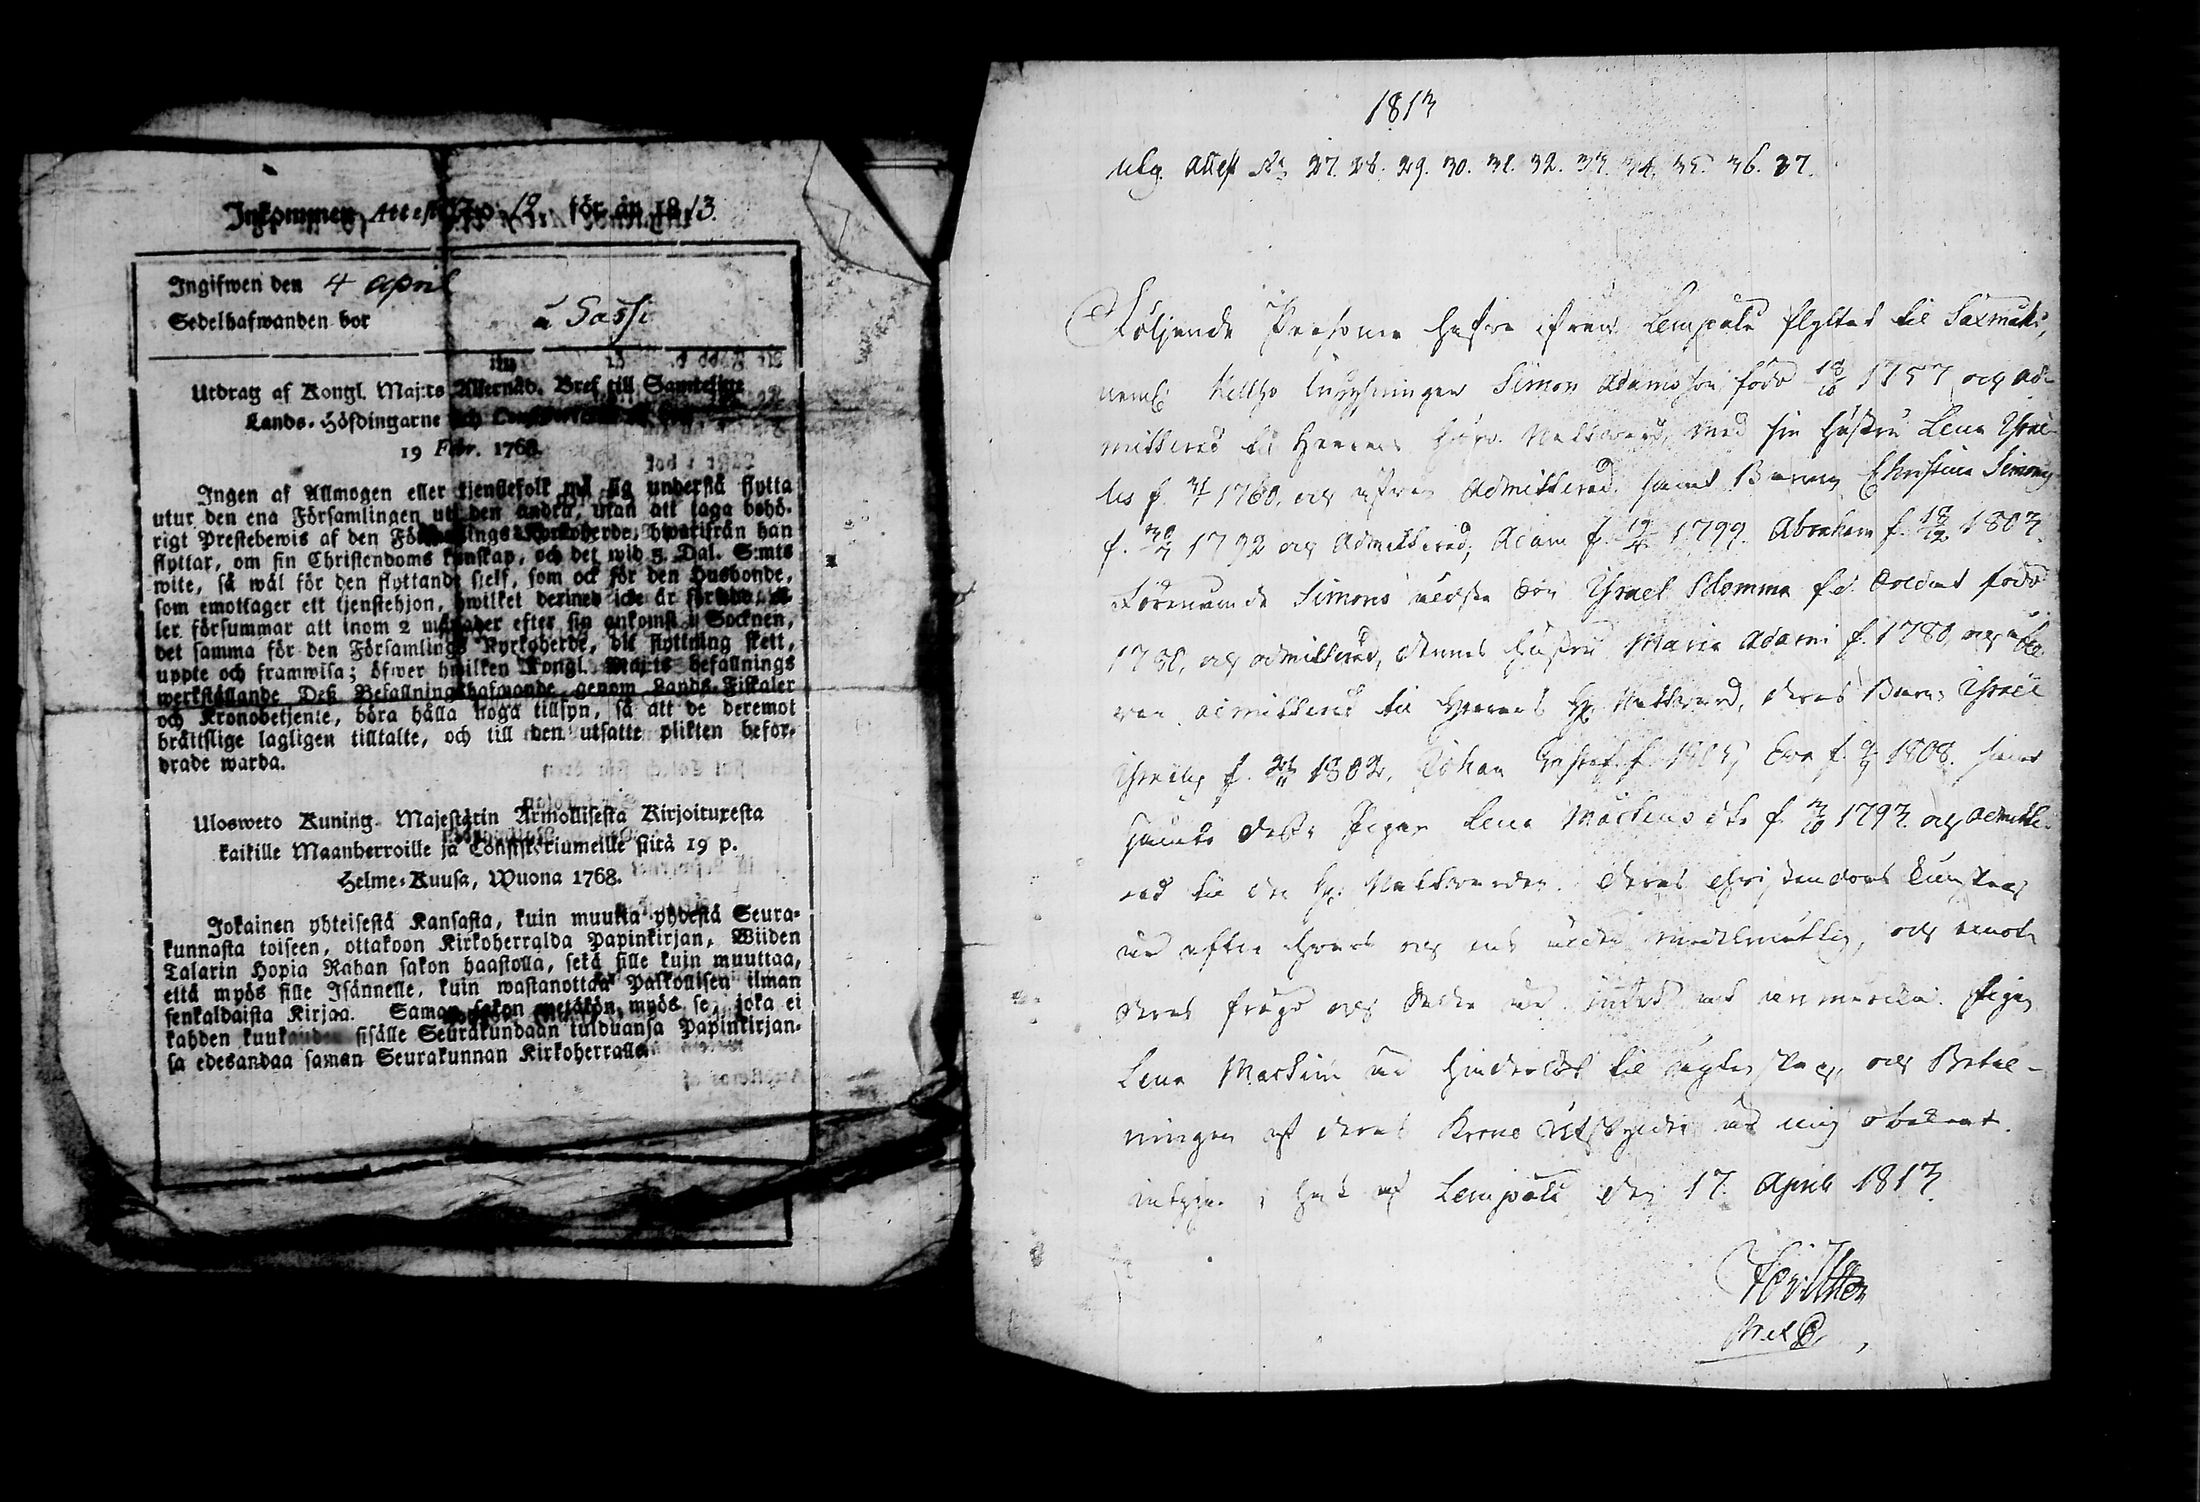 Inkommen Attest No 19. för år 1813.
Ingifwen den 4 April
Sedelhafwanden bor å Sassi
Utdrag af Kongl. Maj:ts Allernåd. Bref till Samtelige
Lands-Höfdingarne och
19 Febr. 1768.
Ingen af Allmogen eller tjenstefolk må sig understå flytta
utur den ena Församlingen uti den andra, utan att taga behö-
rigt Prestebewis af den Församlings Kyrkoherde, hwarifrån han
flyttar, om sin Christendoms kunskap, och det wid 5 Dal. S:mts
wite, så wäl för den flyttande sielf, som ock för den Husbonde,
som emottager ett tjenstehjon, hwilket dermed icke är försedt, el-
ler försummar att inom 2 månader efter sin ankomst i Socknen,
det samma för den Församlings Kyrkoherde, dit flyttning skett,
uppte och framwisa; öfwer hwilken Kongl. Maj:ts befallnings
werkställande Deß Befallningshafwande genom Lands-Fiskaler
och Kronobetjente, böra hålla noga tillsyn, så att de deremot
brättslige lagligen tilltalte, och till den utsatte plikten befor-
drade warda.
Ulosweto Kuning. Majestätin Armollisesta Kirjoituxesta
kaikille Maanherroille ja Consistoriumeille siitä 19 p.
Helme-Kuusa, Wuona 1768.
Jokainen yhteisestä Kansasta, kuin muutta yhdestä Seura-
kunnasta toiseen, ottakoon Kirkoherralda Papinkirjan, Wiiden
Talarin Hopia Rahan sakon haastolla, sekä sille kuin muuttaa,
että myös sille Isännelle, kuin wastanottaa Palkollisen ilman
senkaldaista Kirjaa. Saman sakon wetäkön myös se, joka ei
kahden kuukauden sisälle Seurakundaan tulduansa Papinkirjan-
sa edesandaa saman Seurakunnan Kirkoherralle
1813
utg. Attest No 27. 28. 29. 30. 31. 32. 33. 34. 35. 36. 37.
Följande Personer hafva ifrån Lempälä flyttat til Saxmäki,
neml: Inhysningen Simon Adamsson född 18/10 1757 och ad-
mitterad til Herrans Högv. Nattvard, med sin Hustru Lena Israe-
lis f. 1760, och äfven Admitterad, samt Barnen Christina Simons
f. 1792 och Admitterad, Adam f. 19/4 1799. Abraham f. 18/12 1803.
Förenämnde Simons äldste Son Israel Blomma f.d. Soldat född
1780, och admitterad, dennes Hustru Maria Adami f. 1780 och
admitterad til Herrans H. Nattvard, deras Barn: Israel
Israels f. 1802, Johan Gustaf f. 1805, Eva f. 1808. samt
Pigan Lena Mårtens dtr f. 3/10 1793. och admitte-
rad til den H. Nattvarden. Deras Christendoms Kunskap
är efter medelmåttig, och emot
deras frägd och är intet at anmärka. Pigan
Lena Martini är hinderlös til ägtenskap, och Betal-
ningen af deras Krono Utskylder är mig obekant.
intygar i hast af Lempälä den 17. April 1813.